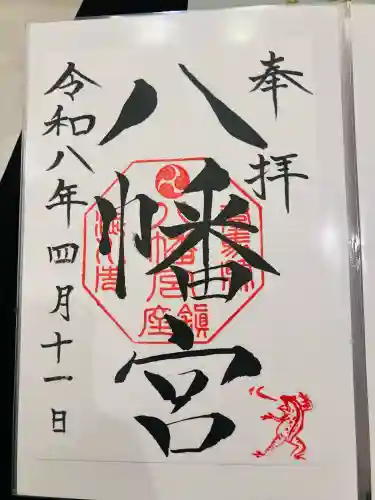 奉拝
八幡宮
令和八年四月十一日